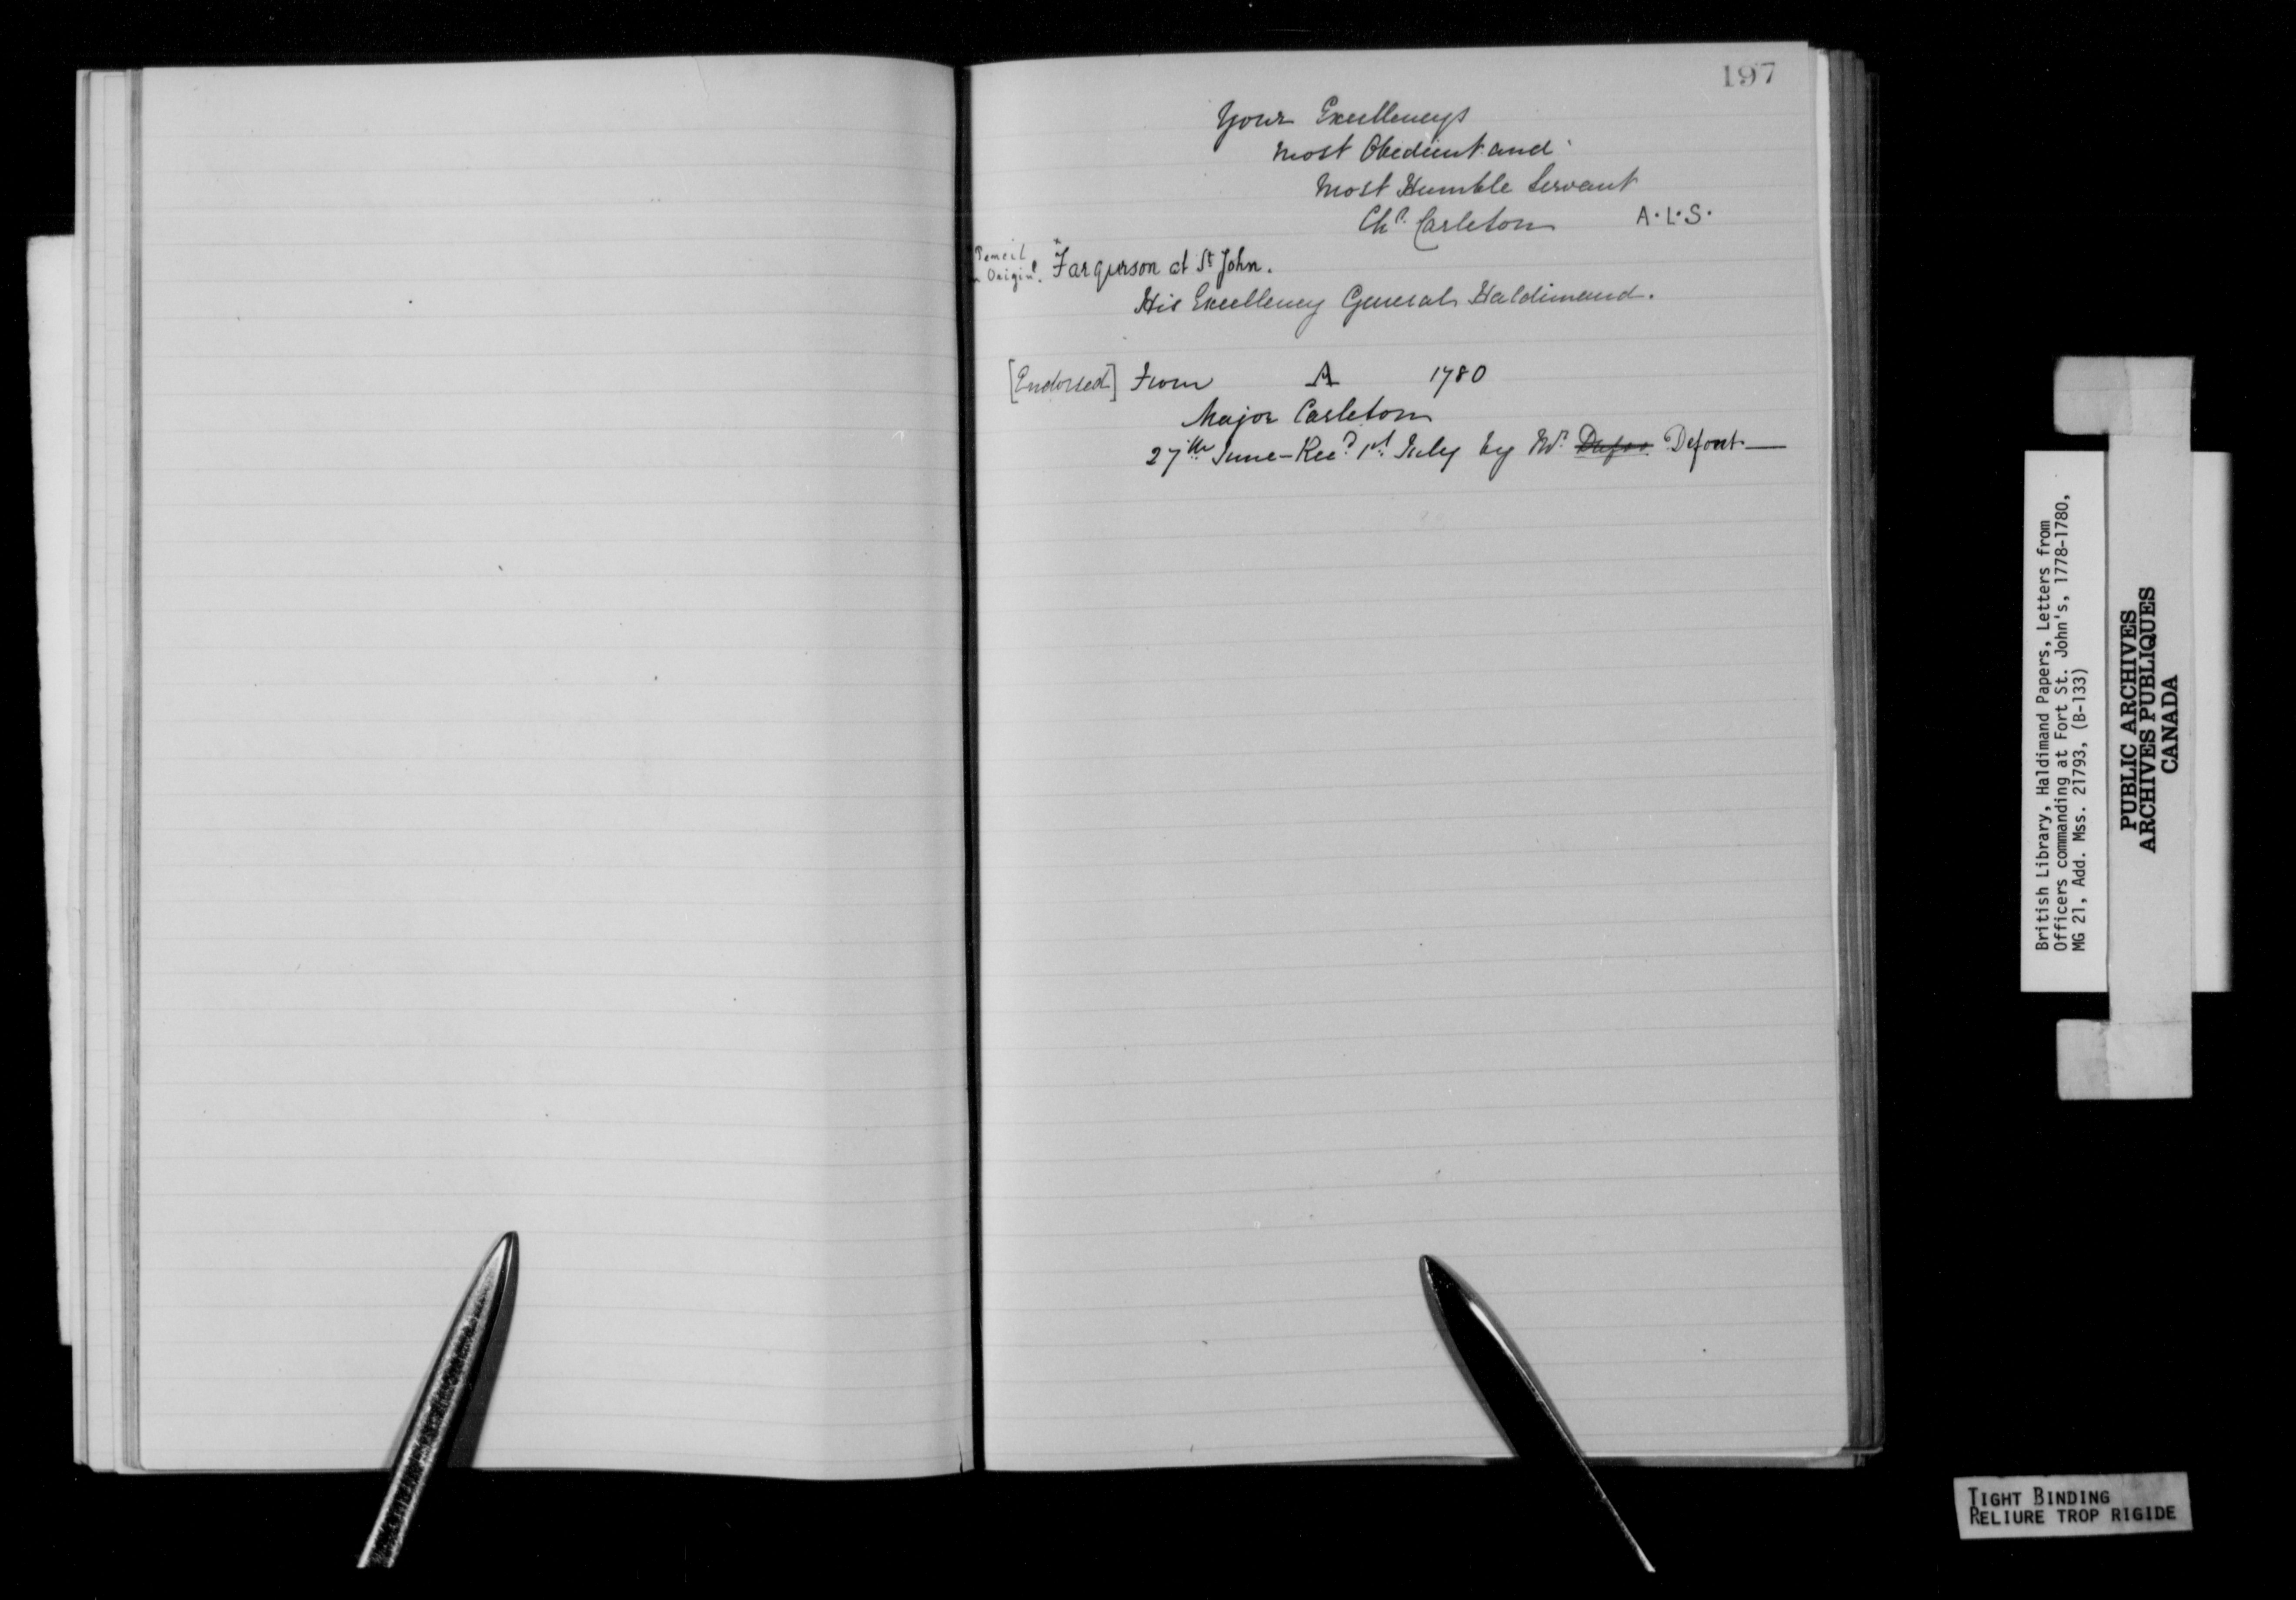 197
Your Excellencys
Most Obedient and
Most Humble Servant
Chs. Carleton A.L.S.
Pencil
in Origin!. *Fargurson at St John.
His Excellency General Haldimand.
[Endorsed] From A 1780
Major Carleton
27th June - Recd. 1st. July by Mr. Defont
British Library, Haldimand Papers, Letters from
Officers commanding at Fort St. John's, 1778-1780,
MG 21, Add. Mss. 21793, (B-133)
PUBLIC ARCHIVES
ARCHIVES PUBLIQUES
CANADA
TIGHT BINDING
RELIURE TROP RIGIDE